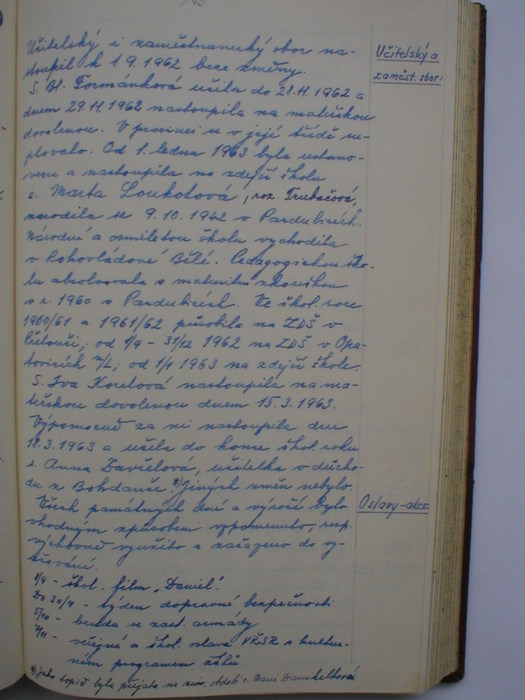 Učitelský i zaměstnanecký sbor na-
stoupil k 1.9.1962 beze změny.
Učitelský a
zaměst. sbor:
S. Bl. Formánková učila do 28.11.1962 a
dnem 29.11.1962 nastoupila na mateřskou
dovolenou. V prosinci se v její třídě su-
plovalo. Od 1. ledna 1963 byla ustano-
vena a nastoupila na zdejší školu
s. Marta Loukotová, roz. Trubačová,
narodila se 9.10.1942 v Pardubicích.
Národní a osmiletou školu vychodila
v Rohovládové Bělé. Pedagogickou ško-
lu absolvovala s maturitní zkouškou
v r. 1960 v Pardubicích. Ve škol. roce
1960/61 a 1961/62 působila na ZDŠ v
od 1/9 - 31/12 1962 na ZDŠ v Opa-
tovicích n/L, od 1/1 1963 na zdejší škole.
S. Iva nastoupila na ma-
teřskou dovolenou dnem 15.3.1963.
Výpomocně za ni nastoupila dne
18.3.1963 a učila do konce škol. roku
s. Anna Zavřelová, učitelka v důcho-
du z Bohdanče. x) Jiných změn nebylo.
Všech památných dní a výročí bylo
Oslavy-akce:
vhodným způsobem vzpomenuto, resp.
výchovně využito a zařazeno do vy-
učování.
1/9 - škol. film "Daniel".
Do 20/9 - týden dopravní bezpečnosti
5/10 - beseda se zást. armády
7/11 - veřejná a škol. oslava VŘSR s kultur-
ním programem žáků
x) jako topič byla přijata na zim. období s. Marie